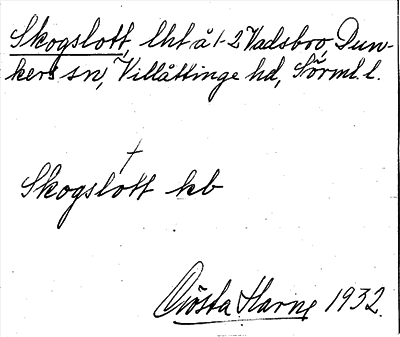 Skogslott, lht å 1-2 Vadsbro, Dun-
kers sn, Villåttinge hd, Sörml. l.
+
Skogslott kb
Gösta Harne 1932.